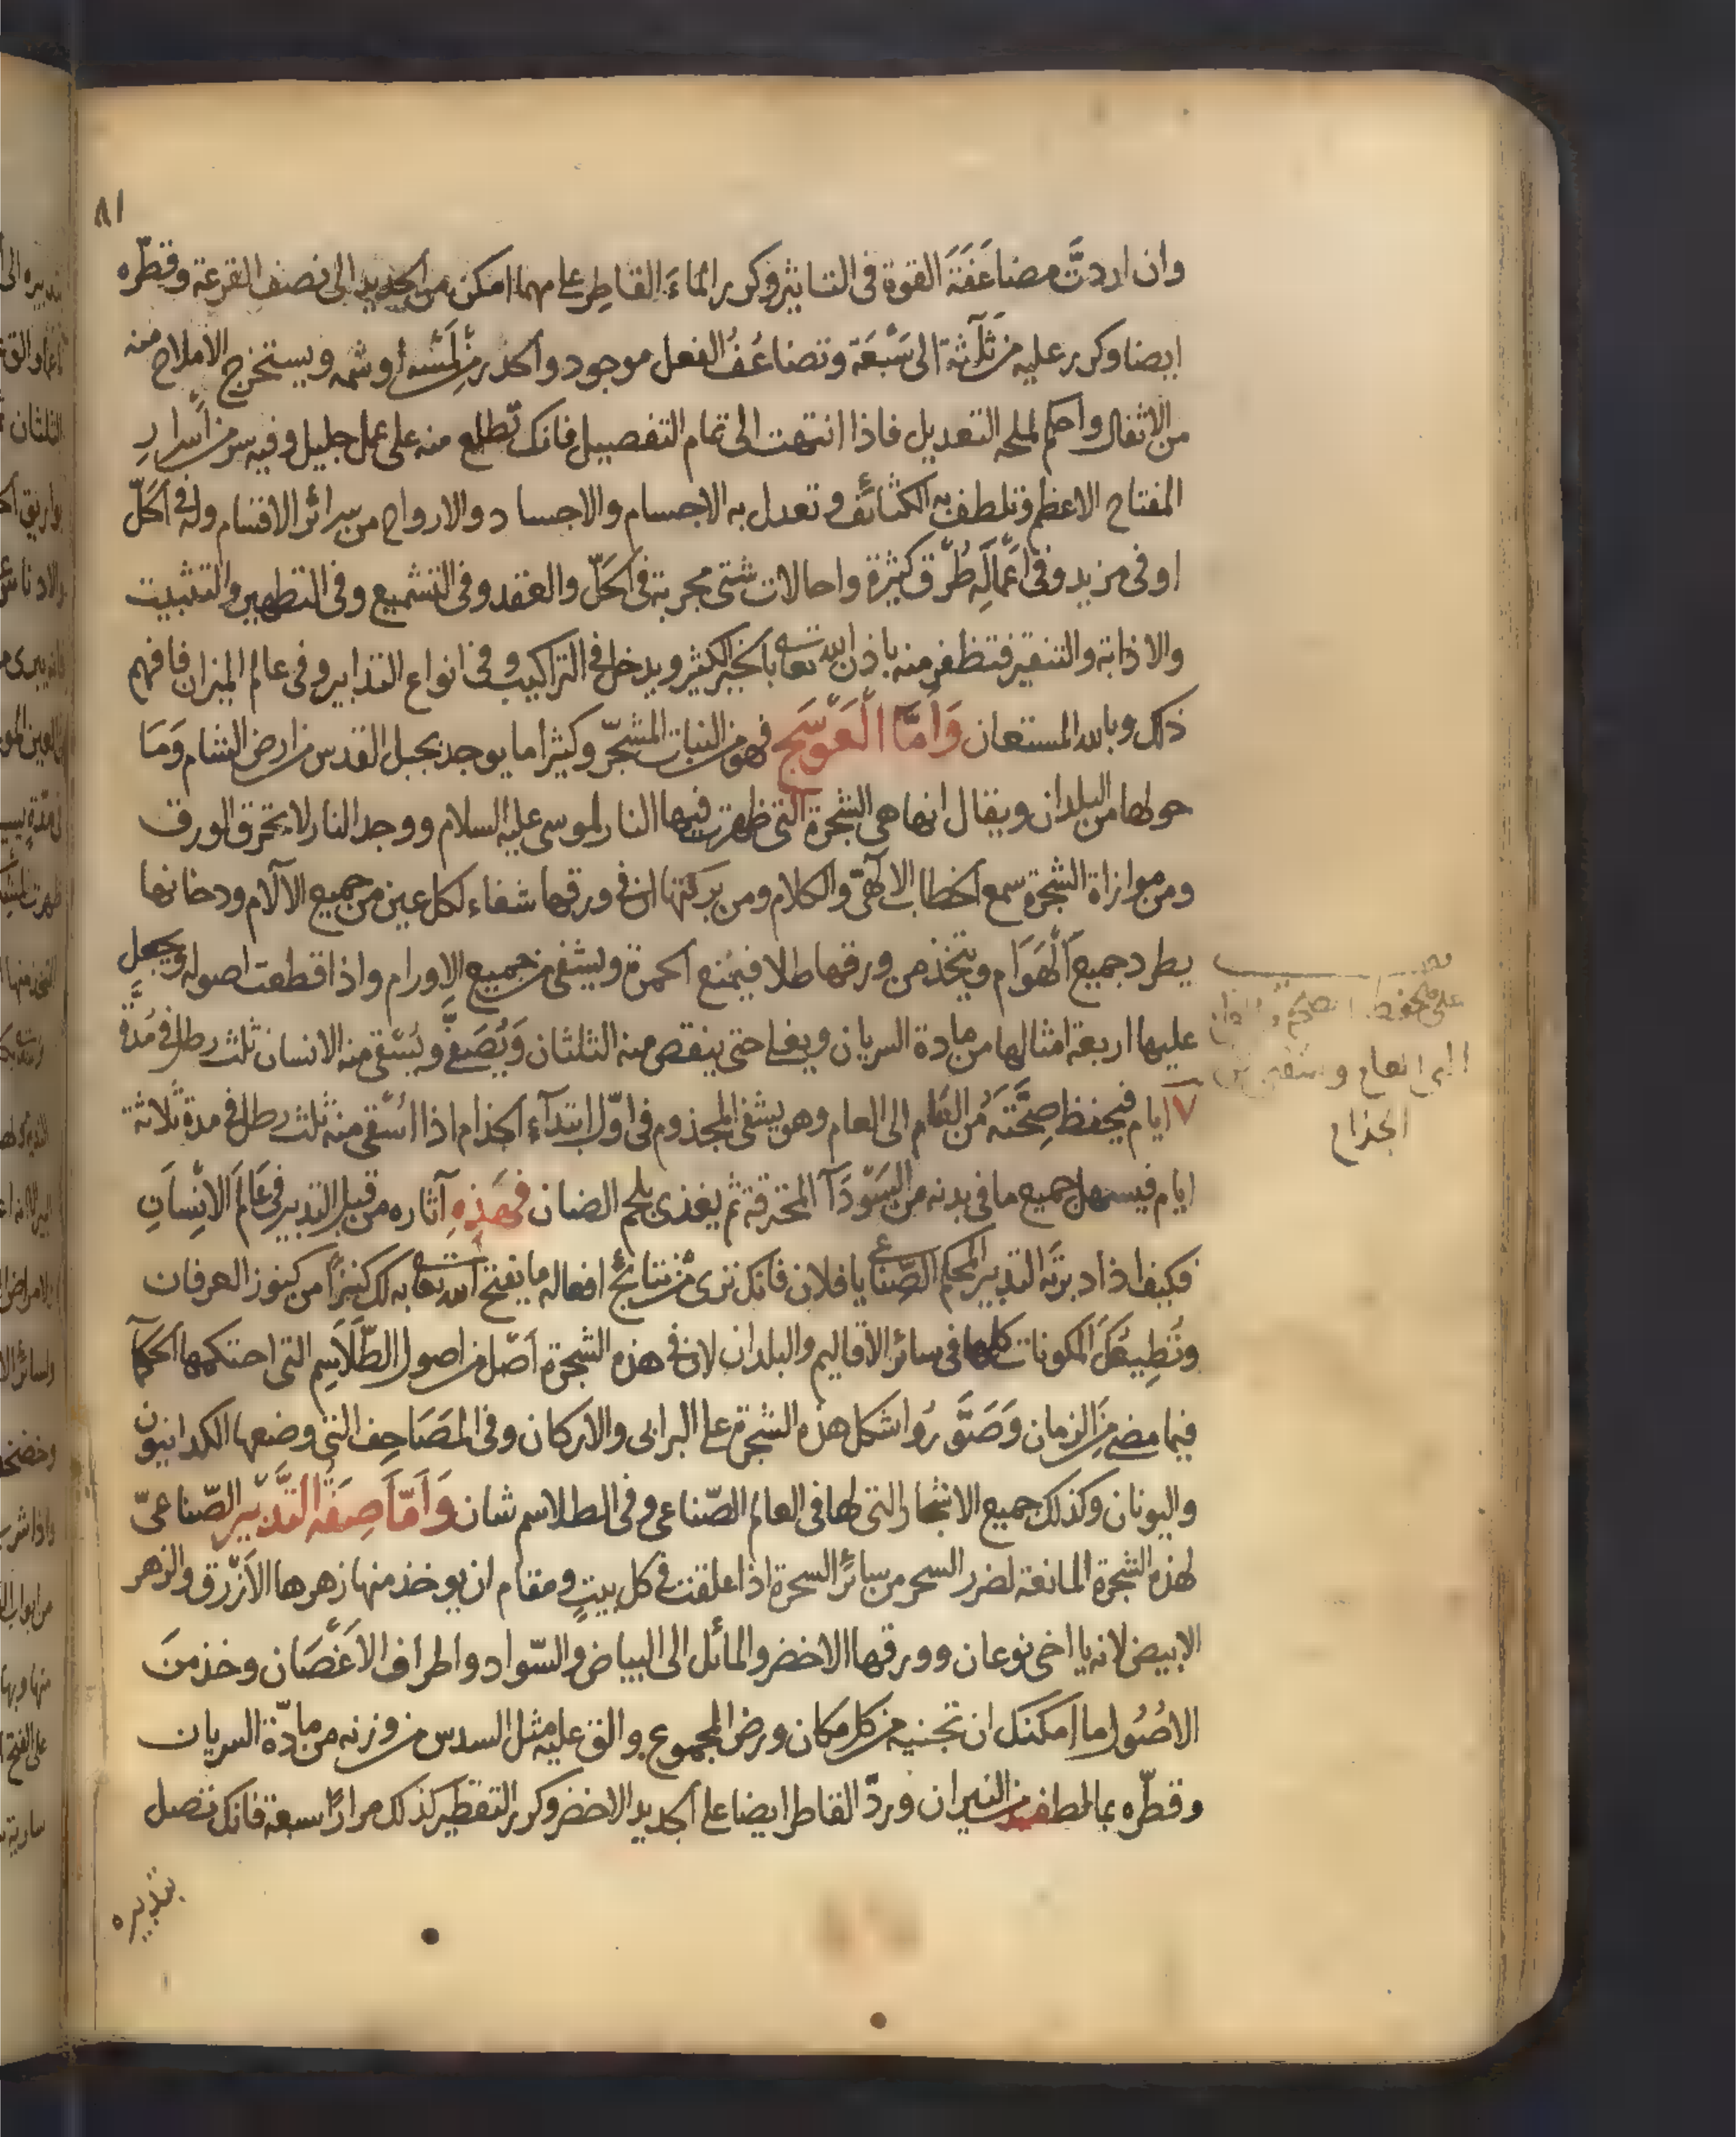 ٨١
وان اردتَّ مضاعَفَةَ القوة فى التاثير وكرر الماءَ القاطِر على مهما امكن من الجديد الى نصف القرعة وقطّره
ايضا وكرر عليه من ثلاثة الى سَبْعَة وتضاعُفُ الفعل موجود واحذر من لَمْسه او شمه ويستخرج الاملاح منه
من الاثفال واحكم لملحه التعديل فاذا انتهت الى تمام التفصيل فانك تطلع منه على عمل جليل وفيه سر من اسرارِ
المفتاح الاعظم وتلطف به الكثائف وتعدل به الاجسام والاجساد والارواح من سرائر الاقسام وله فى الحَلّ
اوفى مزيد وفى اَعْمالِه طُرُق كثيرة واحالات شتى مجربة فى الحَلّ والعقد وفى التشميع وفى التطهير والتثبيت
والاذابة والتنقير فتظفر منه باذن الله تعالى بالخير الكثير ويدخل فى التراكيب وفى انواع التدابير وفى عالم الميزان فافهم
ذلك وبالله المستعان وَاَمَّا الْعَوْسَج فهو من النبات المشجّر وكثيرا ما يوجد بجبل القدس من ارض الشام وَمَا
حولها من البلدان ويقال انها هى الشجرة التى ظهرت فيها النار لموسى عليه السلام ووجد النار لا تحرق الورق
ومن موازاة الشجرة سمع الخطاب الالهىّ والكلام ومن بركتها ان فى ورقها شفاء لكل عين من جميع الالآم ودخانها
يطرد جميع الْهَوَام ويتخذ من ورقها طلا فيمْنع الحمرة ويشفى من جميع الاورام واذا قطعت اصوله ويجعل
عليها اربعة امثالها من مادة السريان ويغلى حتى ينقص منه الثلثان وَيُصَفَّى ويُسْقى منه الانسان ثلث رطل فى مُدَّة
٧ ايام فيحفظ صِحَّتَهُ من العام الى العام وهو يشفى المجذوم فى اوّل ابتدآء الجذام اذا اسْقى منه ثلث رطل فى مدة ثلاثة
ايام فيسهل جميع ما فى بدنه من السَّوْدَآ المحترقة ثم يغذى بلحم الضان فهذِهِ آثاره من قبل التدبير فى عَالَم الانْسَانِ
فكيف اذا دبرتَه التدبير المحكم الصّناعى يا فلان فانك ترى من نتائج افعاله ما يفتح الله تعالى به لك كنزاً من كنوز العرفان
وتُطِيعُكَ المكونات كلها فى سائر الاقاليم والبلدان لان فى هذه الشجرة اَصْل من اصول الطّلَاسِم التى احتكمها الحكمآ
فيما مضى من الزمان وَصَوَّرُوا شكل هذه الشجرة على البرابى والاركان وفى المصَاحِف التى وضعها الكدانيون
واليونان وكذلك جميع الاشجار التى لها فى العالم الصّناعى وفى الطلاسم شان وَاَمّا صِفَة التَّدْبِيْر الصّناعىّ
لهذه الشجرة المانعة لضرر السحر من سائر السحرة اذا علقت فى كل بيتٍ ومقام ان يوخذ منها زهرها الاَزْرق والزهر
الابيض لانه يا اخى نوعان وورقها الاخضر والمائل الى البياض والسّواد واطراف الاَغْصَان وخذ منَ
الاصُول ما امكنك ان تجنيه من كل مكان ورض المجموع والق عليه مثل السدس من وزنه من مادّة السريان
وقطّره بما لطف من النيران وردّ القاطر ايضا على الجديد الاخضر وكرر التقطير كذلك مرارًا سبعة فانك تصل
بتدبيره
على حفظ الصحة
العام الى العام
الجذام